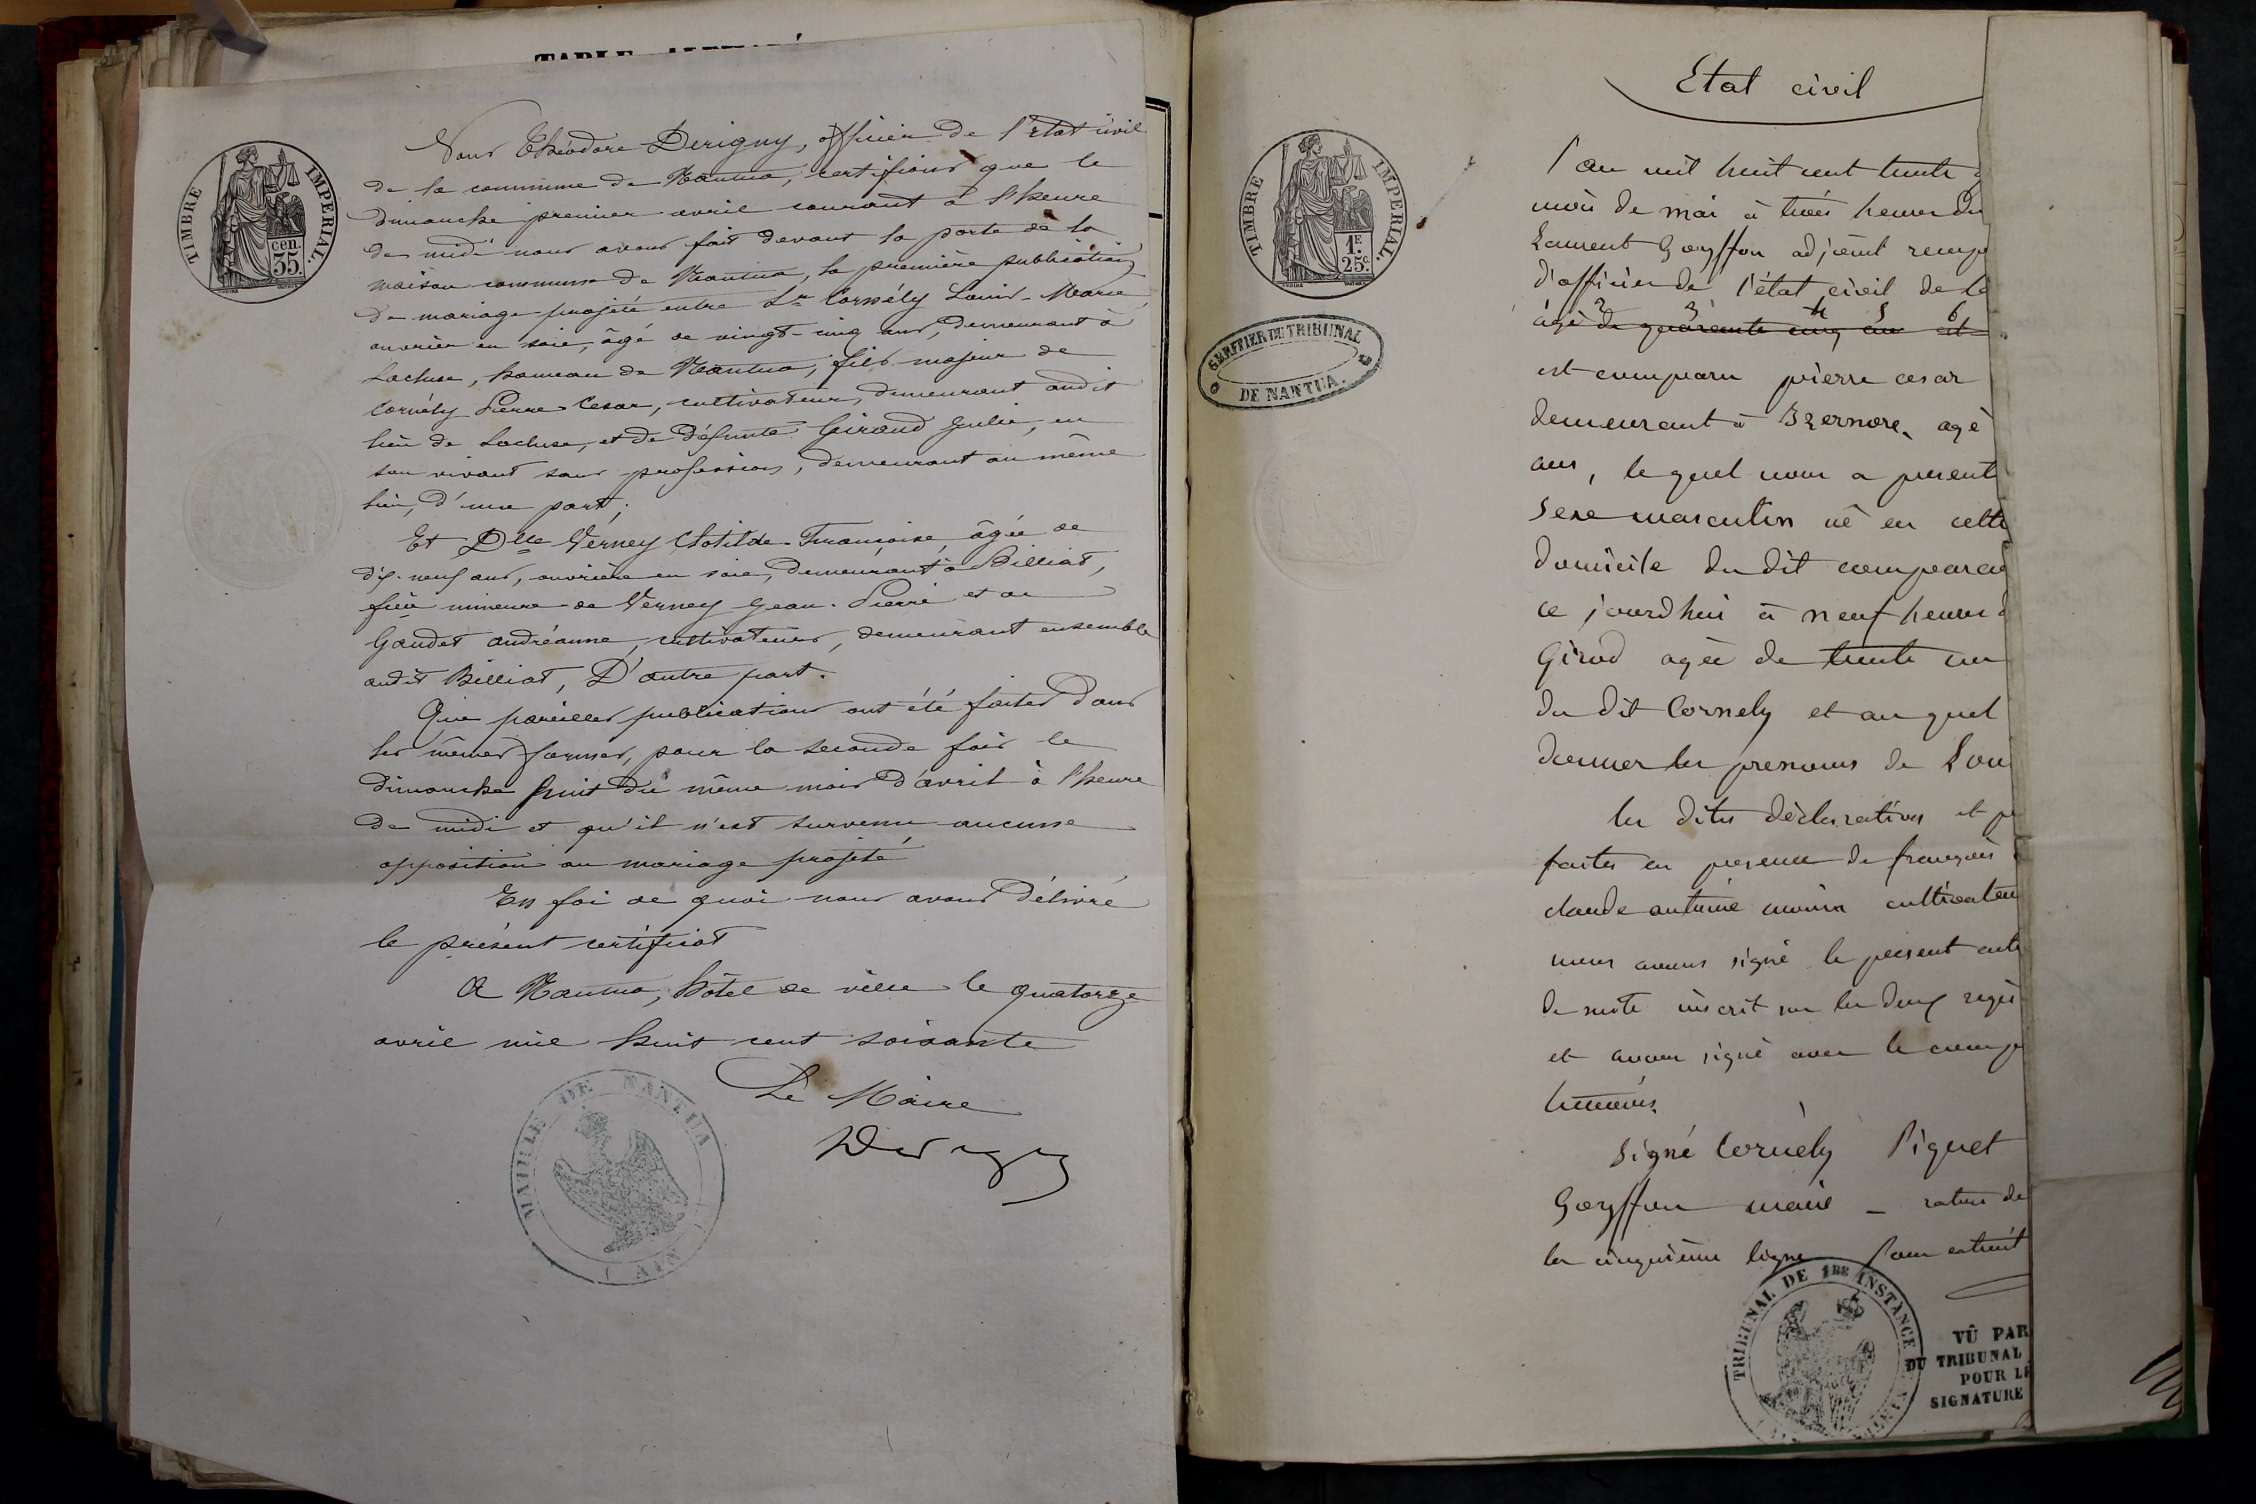 TIMBRE IMPERIAL.
cen.
35.
Nous Théodore Derigny, officier de l'Etat civil
de la commune de Nantua, certifions que le
dimanche premier avril courant à l'heure
de midi nous avons fait devant la porte de la
maison commune de Nantua, la première publication
de mariage projeté entre Sr Cornély Louis-Marie
ouvrier en soie, âgé de vingt-cinq ans, demeurant à
Lacluse, hameau de Nantua, fils majeur de
Cornély Pierre Cesar, cultivateur, demeurant audit
lieu de Lacluse, et de défunte Giraud Julie, en
son vivant sans profession, demeurant au même
lieu, d'une part;
Et Dlle Verney Clotilde-Françoise, âgée de
dix-neuf ans, ouvrière en soie, demeurant à Billiat,
fille mineure de Verney Jean-Pierre et de
Gaudet andréanne, cultivateurs, demeurant ensemble
audit Billiat, D'autre part.
Que pareilles publications ont été faites dans
les mêmes formes, pour la seconde fois le
dimanche huit du même mois d'avril à l'heure
de midi et qu'il n'est survenu aucune
opposition au mariage projeté
En foi de quoi nous avons délivré
le présent certificat
A Nantua, hôtel de ville le quatorze
avril mil huit cent soixante
Le Maire
Derigny
MAIRIE DE NANTUA
( AIN )
Etat civil
TIMBRE IMPERIAL.
1.E
25.c
GREFFIER DU TRIBUNAL
DE NANTUA.
l'an mil huit cent trente
mois de mai à trois heures du
Laurent Goyffon adjoint remp
d'officier de l'état civil de la
2 3 4 5 6
âgé de quarante cinq ans et
est comparu pierre cesar
demeurant à Izernore, agé
ans, lequel nous a presenté
sexe masculin né en cette
domicile du dit comparan
ce jourdhui à neuf heures
Girod agée de trente un
du dit Cornely et auquel
donner les prenoms de Lou
les dites déclaration et p
faites en presence de françois
claude antoine cultivateu
nous avons signé le present acte
de suite inscrit sur les deux regis
et avons signé avec le comp
temoins.
signé Cornély Piquet
Goyffon maire _ rature de
la cinquième ligne Pour extrait
TRIBUNAL DE 1RE INSTANCE
VÛ PAR
DU TRIBUNAL
POUR LÉ
SIGNATURE